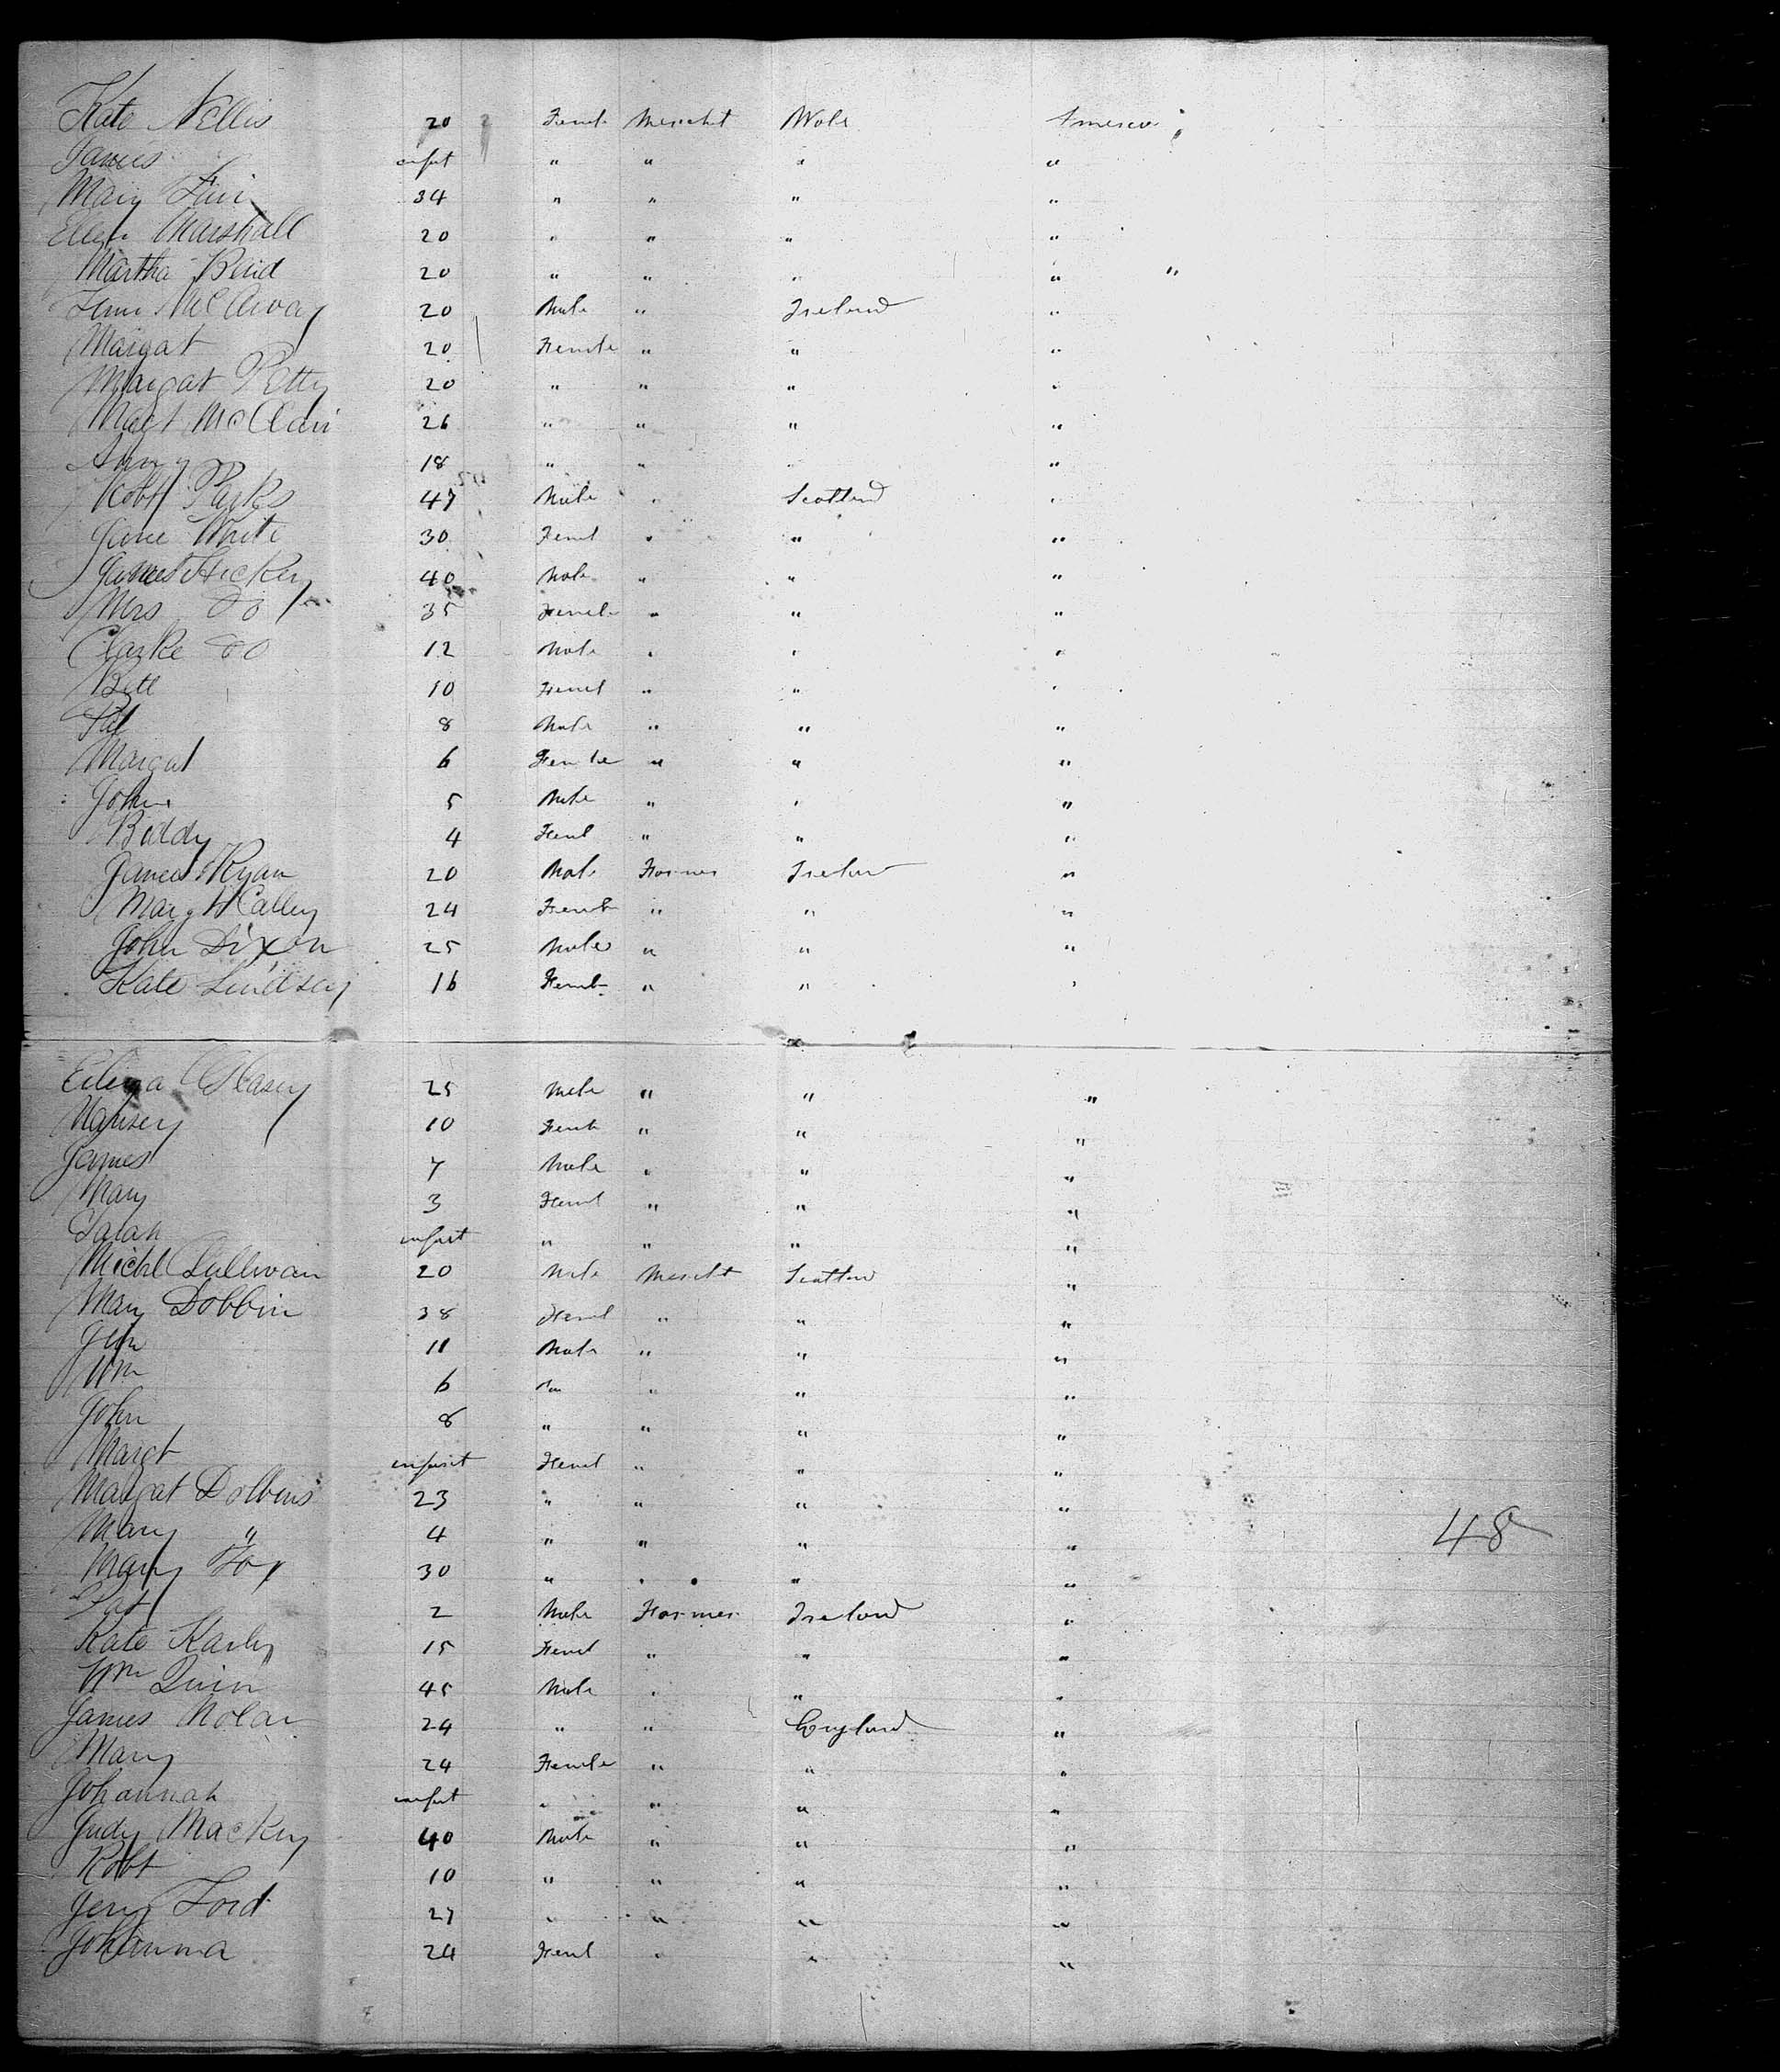 Kate Nellis 20 Femle Mercht Wale America
James infnt " " " "
Mary 34 " " " "
Ellen Marshall 20 " " " "
Martha Reid 20 " " " " "
20 Male " Ireland "
Margat 20 Female " " "
Margat Petty 20 " " " "
Magt McClain 26 " " " "
Ann 18 " " " "
Robt Parks 47 Male " Scotland "
Jane White 30 Feml " " "
James Hickey 40 Male " " "
Mrs Do 35 Femle " " "
Clarke Do 12 Male " " "
Bell 10 Feml " " "
Pat 8 Male " " "
Margat 6 Female " " "
John 5 Male " " "
Biddy 4 Feml " " "
James Ryan 20 Male Farmer Irelan "
Mary 24 Femle " " "
John Dixon 25 Male " " "
Kate Lindsay 16 Femle " " "
25 Male " " "
10 Femle " " "
James 7 Male " " "
Mary 3 Feml " " "
Sarah infant " " " "
Michl Sullivan 20 Male Mercht Scotlan "
Mary Dobbin 38 Feml " " "
Jim 11 Male " " "
Wm 6 " " "
John 8 " " " "
Margt infant Feml " " "
Margat Dobbins 23 " " " "
Mary " 4 " " " " 48
Mary Foy 30 " " " "
Pat 2 Male Farmer Ireland "
Kate 15 Feml " " "
Wm Quinn 45 Male " " "
James Nolan 24 " " England "
Mary 24 Female " " "
Johannah infnt " " " "
Judy Mackey 40 Male " " "
Robt 10 " " " "
Jery Ford 27 " " " "
Johanna 24 Feml " " "